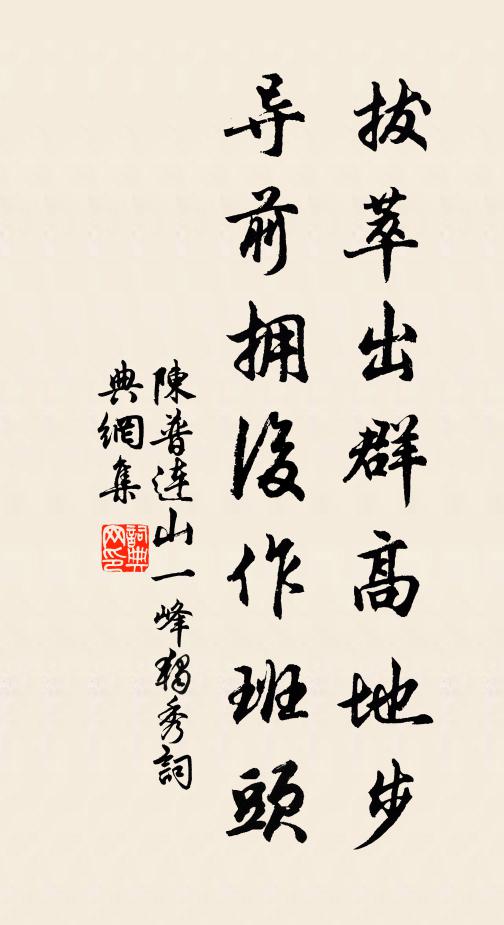 拔萃出群高地步
导前拥後作班頭
陳普連山一峰獨秀詞
典網集
詞典網印